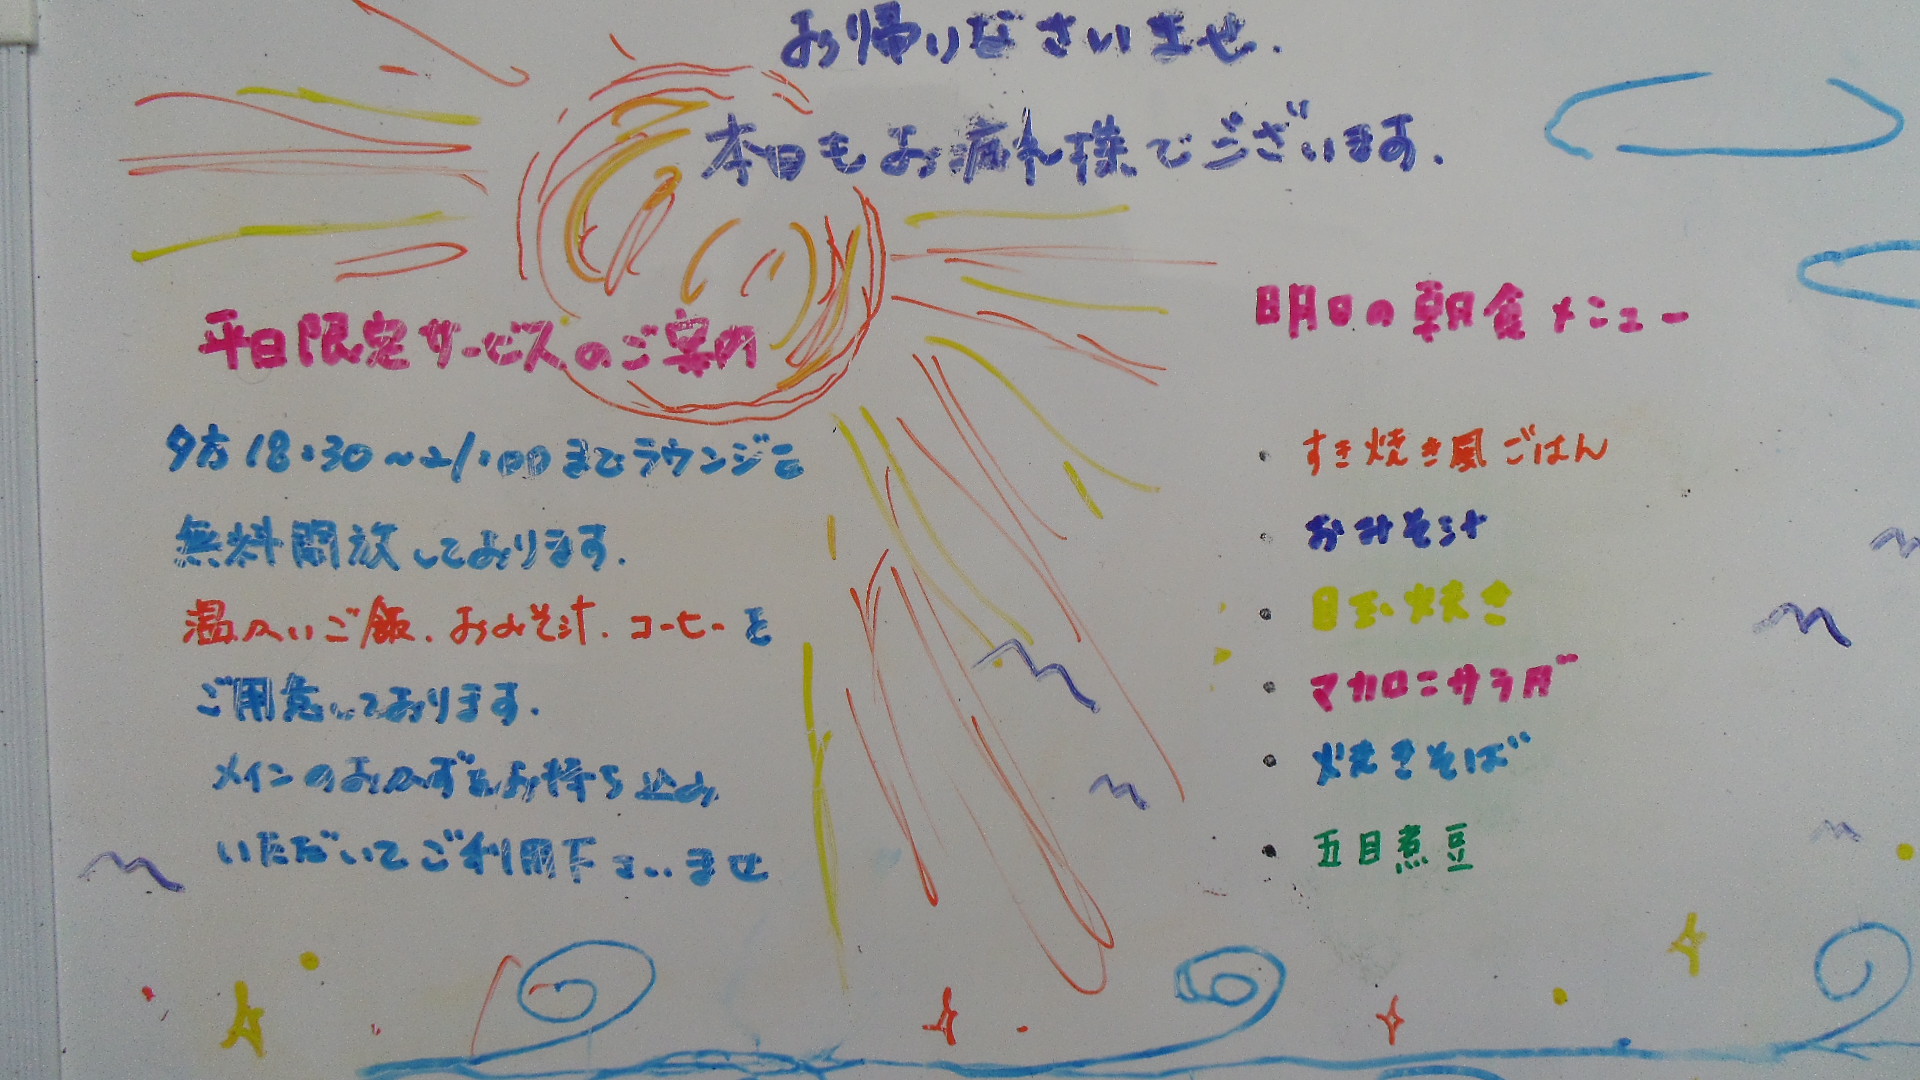 お帰りなさいませ.
本日もお疲れ様でございます.
平日限定サービスのご案内
夕方18:30～21:00までラウンジを
無料開放しております.
温かいご飯.おみそ汁.コーヒーを
ご用意しております.
メインのおかずをお持ち込み
いただいてご利用下さいませ
明日の朝食メニュー
・すき焼き風ごはん
・おみそ汁
・目玉焼き
・マカロニサラダ
・焼きそば
・五目煮豆